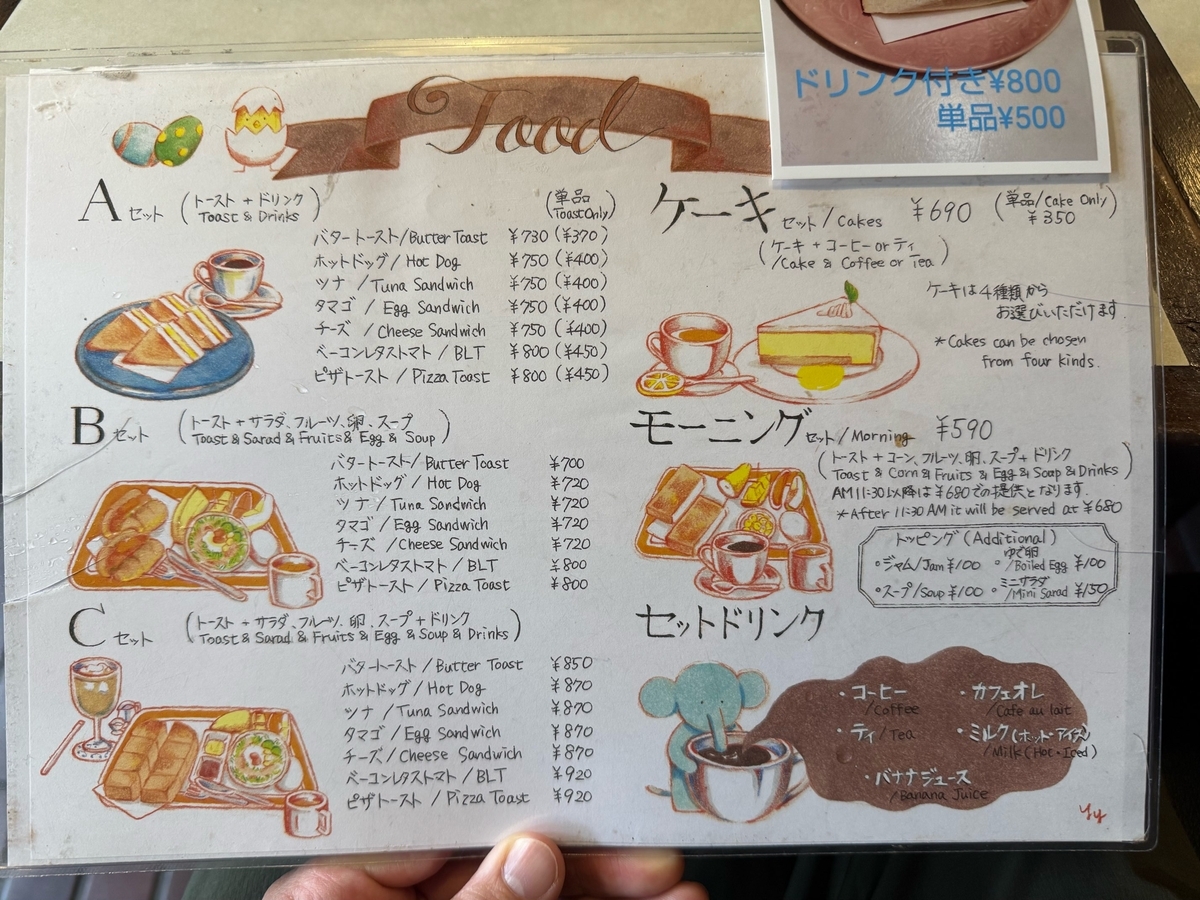 ドリンク付き¥800
単品¥500
Food
A セット (トースト + ドリンク)
Toast & Drinks
(単品)
(Toast Only)
バタートースト/Butter Toast ¥730 (¥370)
ホットドッグ/Hot Dog ¥750 (¥400)
ツナ /Tuna Sandwich ¥750 (¥400)
タマゴ / Egg Sandwich ¥750 (¥400)
チーズ /Cheese Sandwich ¥750 (¥400)
ベーコンレタストマト/BLT ¥800 (¥450)
ピザトースト / Pizza Toast ¥800 (¥450)
B セット (トースト + サラダ、フルーツ、卵、スープ)
Toast & Sarad & Fruits & Egg & Soup
バタートースト/Butter Toast ¥700
ホットドッグ/Hot Dog ¥720
ツナ /Tuna Sandwich ¥720
タマゴ /Egg Sandwich ¥720
チーズ /Cheese Sandwich ¥720
ベーコンレタストマト/BLT ¥800
ピザトースト /Pizza Toast ¥800
C セット (トースト + サラダ、フルーツ、卵、スープ + ドリンク)
Toast & Sarad & Fruits & Egg & Soup & Drinks
バタートースト/Butter Toast ¥850
ホットドッグ/Hot Dog ¥870
ツナ /Tuna Sandwich ¥870
タマゴ /Egg Sandwich ¥870
チーズ/Cheese Sandwich ¥870
ベーコンレタストマト/BLT ¥920
ピザトースト / Pizza Toast ¥920
ケーキ セット/Cakes ¥690 (単品/Cake Only)
¥350
(ケーキ + コーヒーorティ)
/Cake & Coffee or Tea
ケーキは4種類から
お選びいただけます.
*Cakes can be chosen
from four kinds.
モーニング セット/Morning ¥590
(トースト + コーン、フルーツ、卵、スープ + ドリンク)
Toast & Corn & Fruits & Egg & Soap & Drinks
AM 11:30以降は¥680での提供となります.
*After 11:30 AM it will be served at ¥680
トッピング (Additional)
・ジャム/Jam ¥100 ・ゆで卵/Boiled Egg ¥100
・スープ/Soup ¥100 ・ミニサラダ/Mini Sarad ¥150
セットドリンク
・コーヒー ・カフェオレ
/Coffee /Cafe au lait
・ティ/Tea ・ミルク(ホット・アイス)
/Milk (Hot・Iced)
・バナナジュース
/Banana Juice
yy